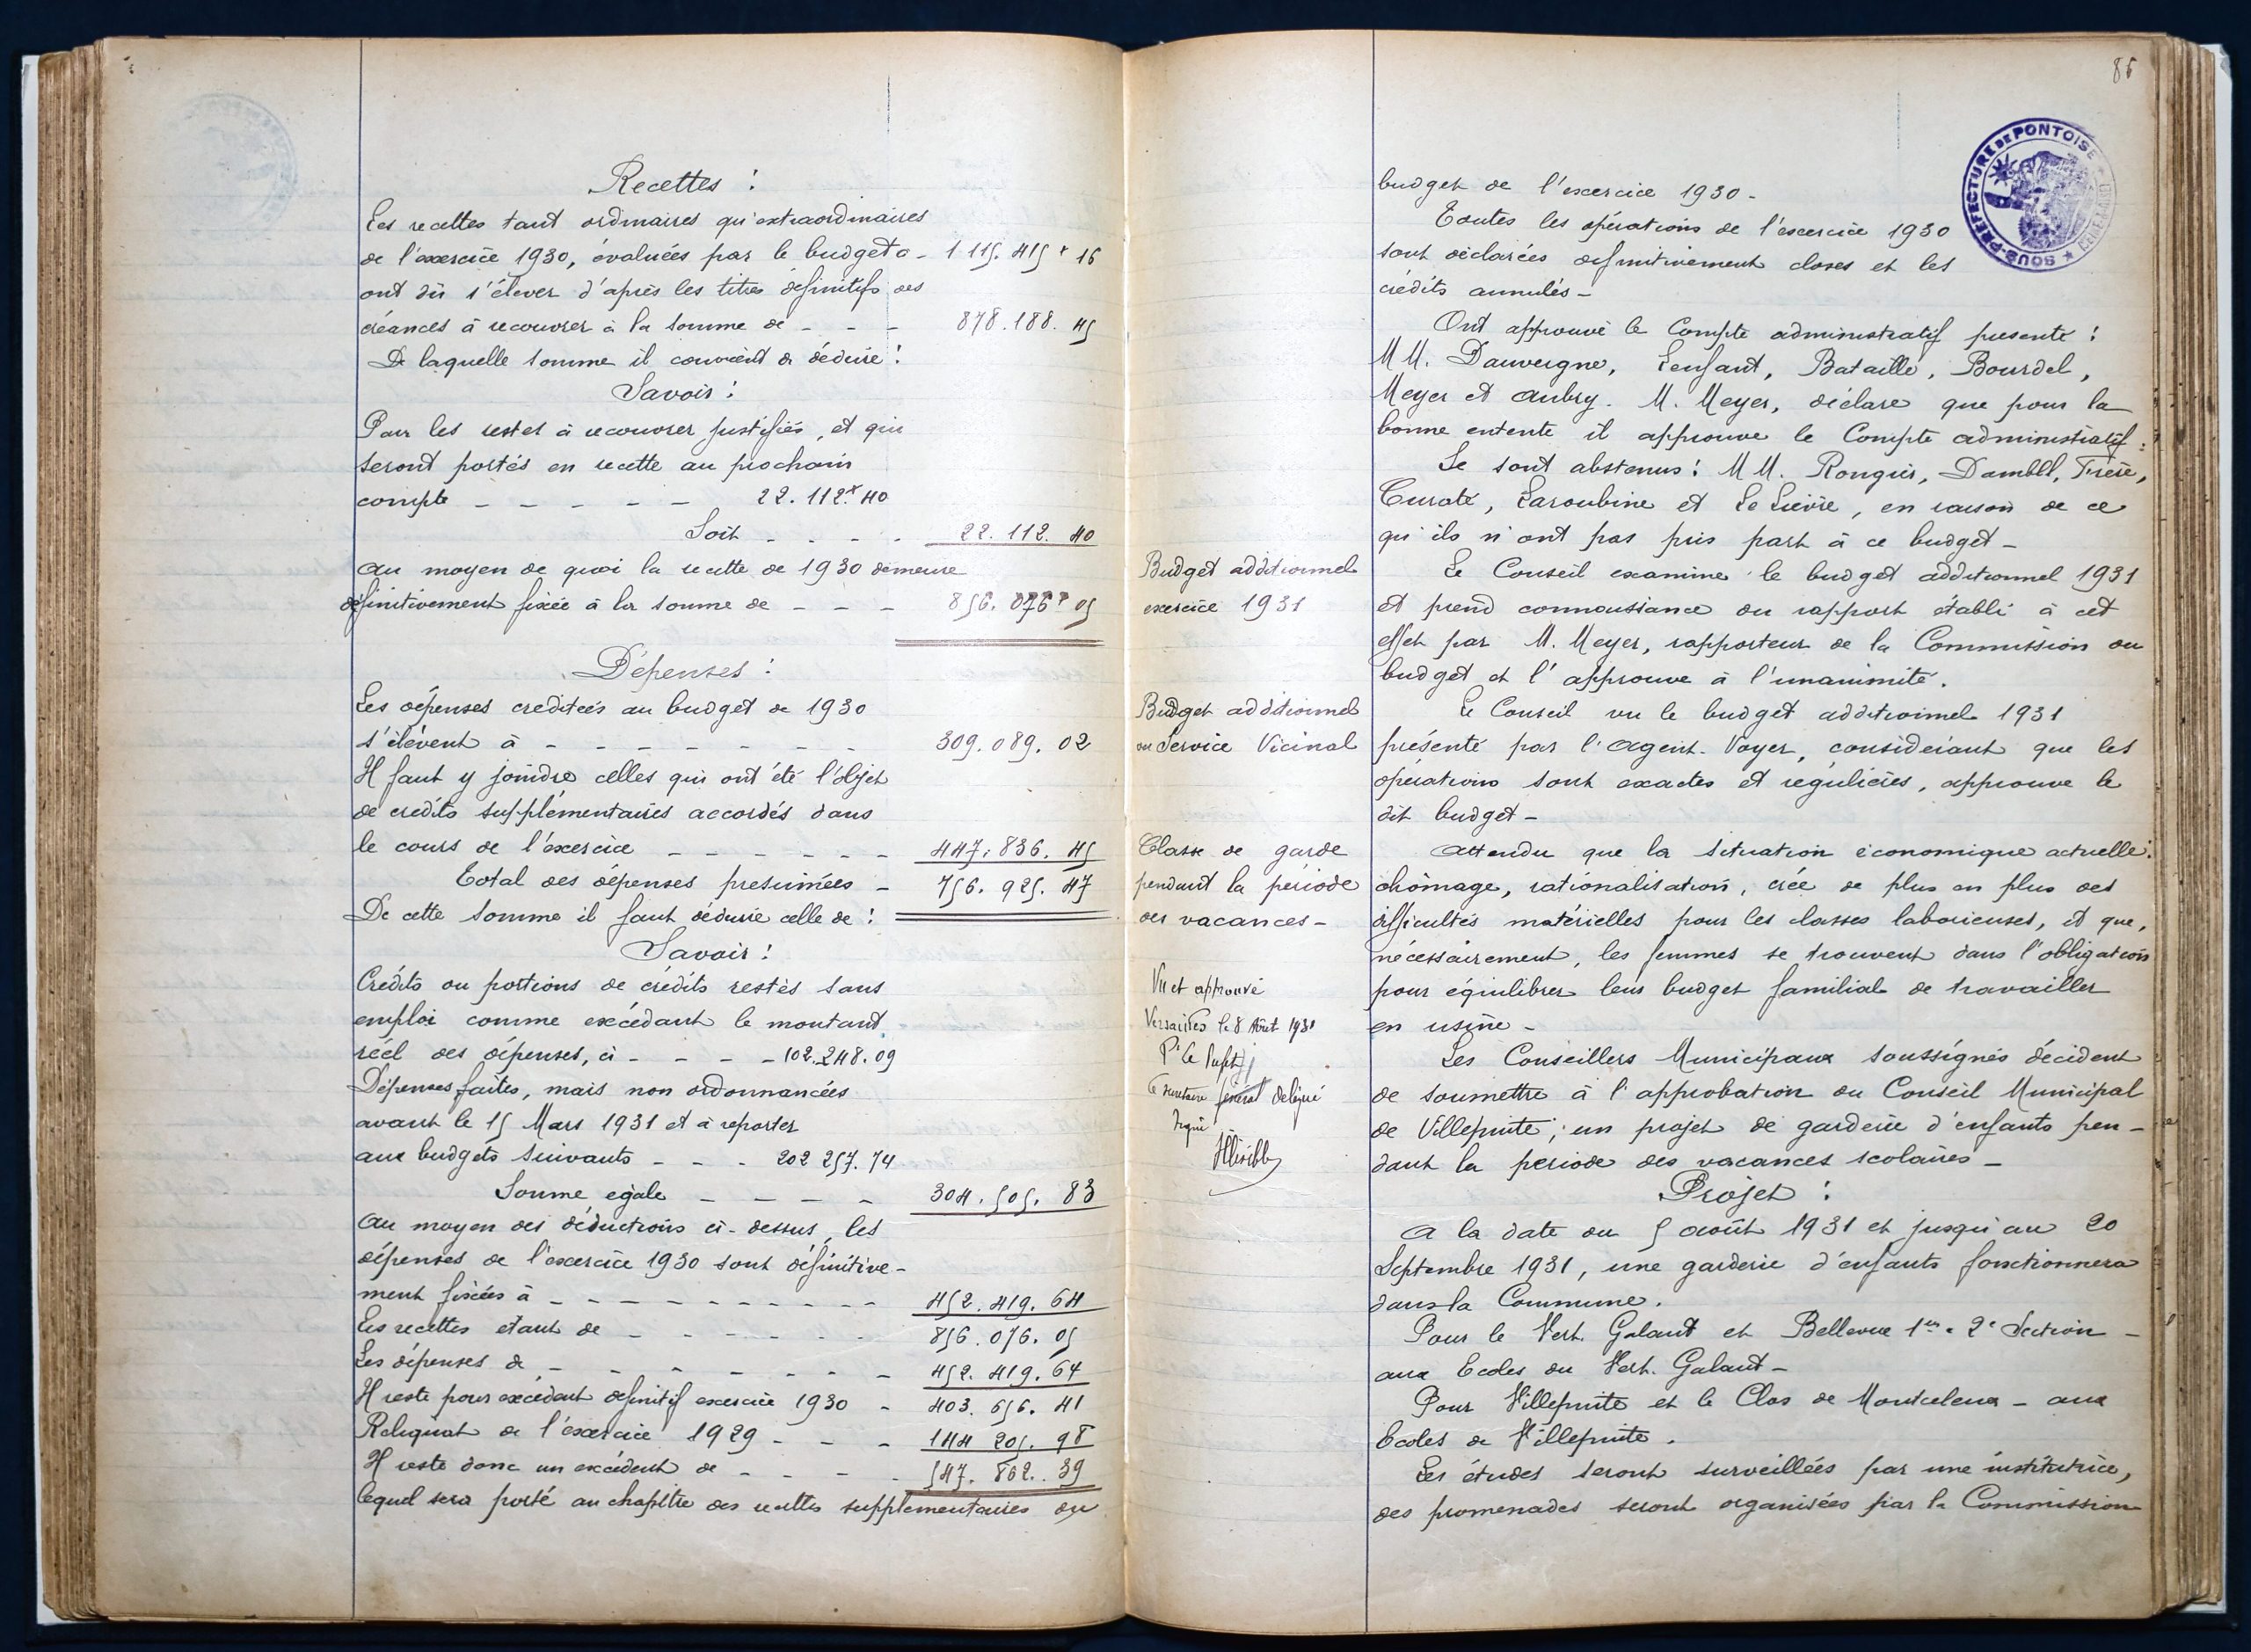 Recettes :
Les recettes tant ordinaires qu'extraordinaires
de l'exercice 1930, évaluées par le budget à - 1 115. 415 f 16
ont dû s'élever d'après les titres définitifs des
créances à recouvrer à la somme de - - - 878.188. 45
De laquelle somme il convient de déduire :
Savoir :
Pour les restes à recouvrer justifiés, et qui
seront portés en recette au prochain
compte - - - - - 22. 112 f 40
Soit - - - - 22. 112. 40
Au moyen de quoi la recette de 1930 demeure
définitivement fixée à la somme de - - - 856. 076 f 05
Dépenses :
Les dépenses créditées au budget de 1930
s'élèvent à - - - - - - - 309. 089. 02
Il faut y joindre celles qui ont été l'objet
de crédits supplémentaires accordés dans
le cours de l'exercice - - - - - - 447. 836. 45
Total des dépenses présumées - 756. 925. 47
De cette somme il faut déduire celle de :
Savoir :
Crédits ou portions de crédits restés sans
emploi comme excédant le montant
réel des dépenses, ci - - - - 102.248.09
Dépenses faites, mais non ordonnancées
avant le 15 Mars 1931 et à reporter
aux budgets suivants - - - 202 257. 74
Somme égale - - - - 304. 505. 83
Au moyen des déductions ci-dessus, les
dépenses de l'exercice 1930 sont définitive-
ment fixées à - - - - - - - - - - 452. 419. 64
Les recettes étant de - - - - - - 856. 076. 05
Les dépenses de - - - - - - - 452. 419. 64
Il reste pour excédent définitif exercice 1930 - 403. 656. 41
Reliquat de l'exercice 1929 - - - 144 205. 98
Il reste donc un excédent de - - - - 547. 862. 39
lequel sera porté au chapitre des recettes supplémentaires du
86
SOUS-PREFECTURE DE PONTOISE
budget de l'exercice 1930 -
Toutes les opérations de l'exercice 1930
sont déclarées définitivement closes et les
crédits annulés -
Ont approuvé le Compte administratif présenté :
MM. Dauvergne, Lenfant, Bataille, Bourdel,
Meyer et Aubry. M. Meyer, déclare que pour la
bonne entente il approuve le Compte administratif.
Se sont abstenus : MM. Rongris, Frère,
Curaté, Laroubine et Le Lièvre, en raison de ce
qu'ils n'ont pas pris part à ce budget -
Budget additionnel
exercice 1931
Le Conseil examine le budget additionnel 1931
et prend connaissance du rapport établi à cet
effet par M. Meyer, rapporteur de la Commission du
budget et l'approuve à l'unanimité.
Budget additionnel
du Service Vicinal
Le Conseil vu le budget additionnel 1931
présenté par l'Agent-Voyer, considérant que les
opérations sont exactes et régulières, approuve le
dit budget -
Classe de garde
pendant la période
des vacances -
Attendu que la situation économique actuelle :
chômage, rationalisation, crée de plus en plus des
difficultés matérielles pour les classes laborieuses, et que,
nécessairement, les femmes se trouvent dans l'obligation
pour équilibrer leur budget familial de travailler
en usine -
Vu et approuvé
Versailles le 8 Août 1931
Pr Le Préfet
Le secrétaire général délégué
signé
Illisible
Les Conseillers Municipaux soussignés décident
de soumettre à l'approbation du Conseil Municipal
de Villepinte ; un projet de garderie d'enfants pen-
dant la période des vacances scolaires -
Projet :
A la date du 5 août 1931 et jusqu'au 20
Septembre 1931, une garderie d'enfants fonctionnera
dans la Commune.
Pour le Vert-Galant et Bellevue 1re & 2e Section -
aux Ecoles du Vert-Galant -
Pour Villepinte et le Clos de Montceleux - aux
Ecoles de Villepinte.
Les études seront surveillées par une institutrice,
des promenades seront organisées par la Commission